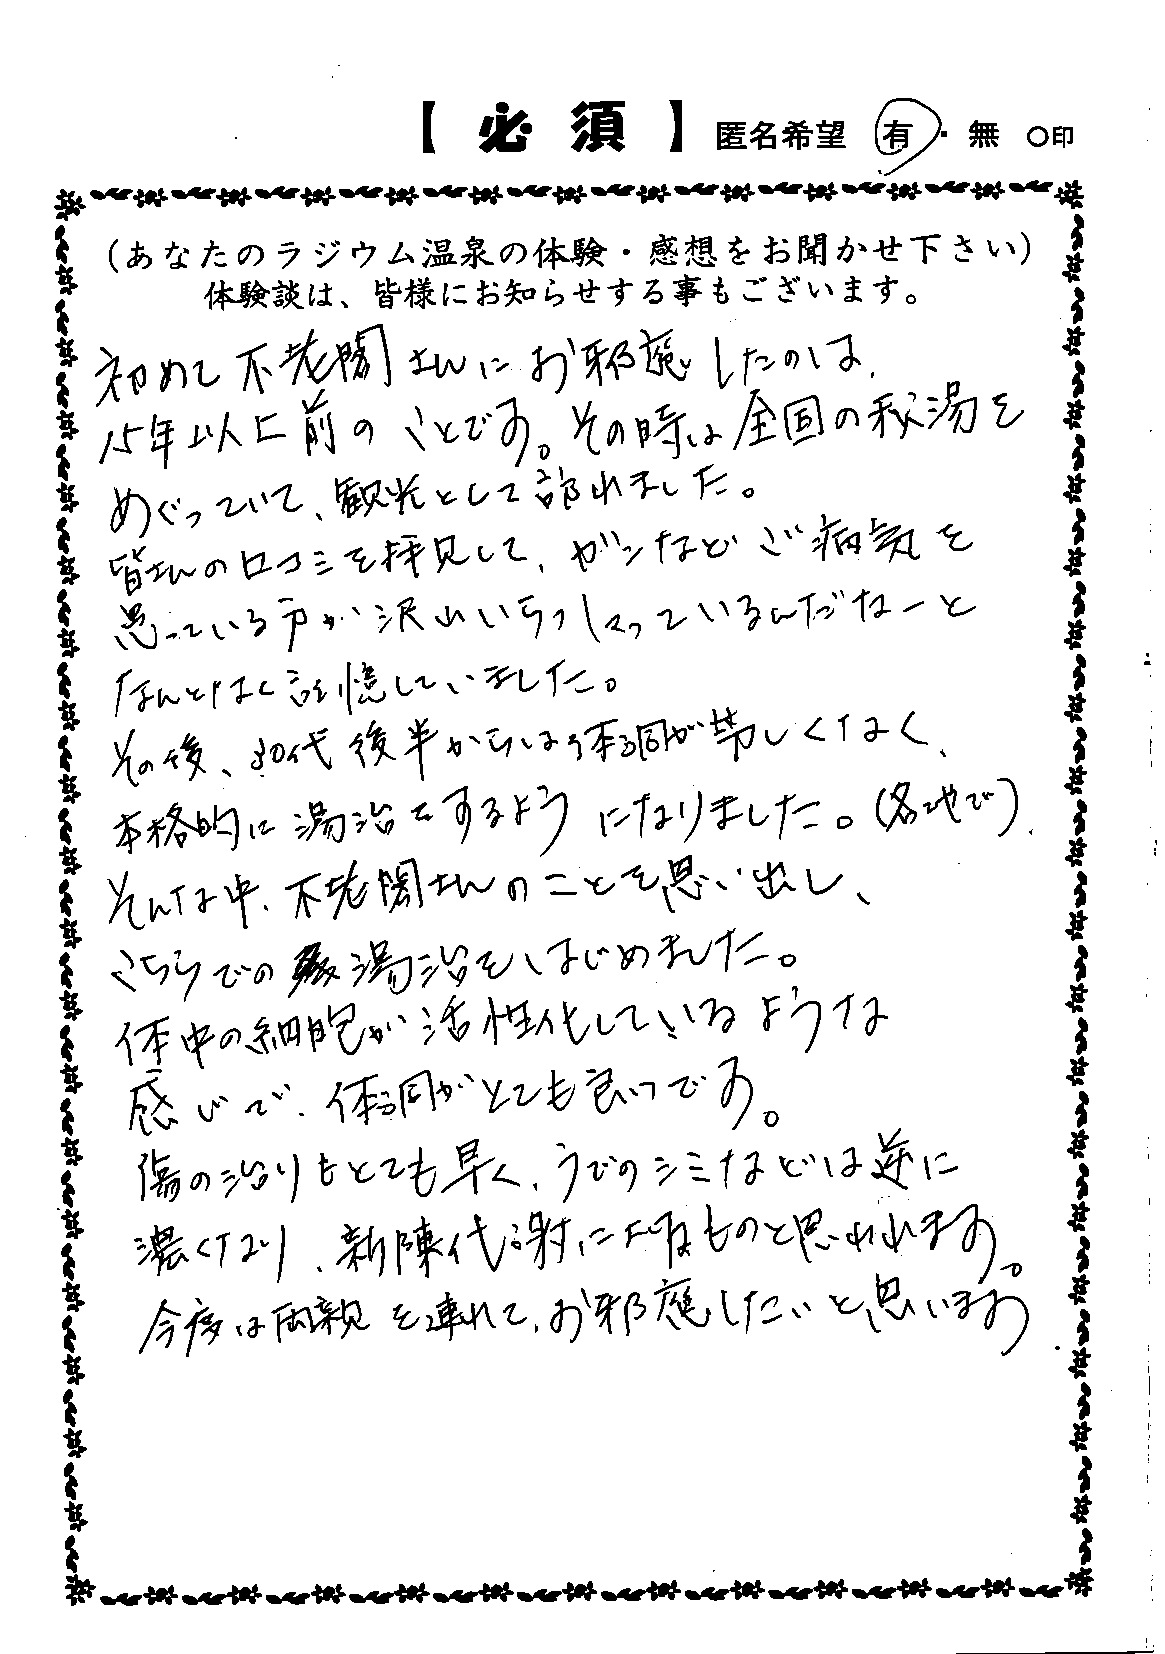 【必須】 匿名希望 有・無 ○印
(あなたのラジウム温泉の体験・感想をお聞かせ下さい)
体験談は、皆様にお知らせする事もございます。
初めて不老閣さんにお邪魔したのは、
15年以上前のことです。その時は全国の秘湯を
めぐっていて、観光として訪れました。
皆さんの口コミを拝見して、ガンなどご病気を
患っている方が沢山いらっしゃっているんだなーと
なんとなく記憶していました。
その後、30代後半からは体調が芳しくなく、
本格的に湯治をするようになりました。(各地で)
そんな中、不老閣さんのことを思い出し、
こちらでの湯治をはじめました。
体中の細胞が活性化しているような
感じで、体調がとても良いです。
傷の治りもとても早く、うでのシミなどは逆に
濃くなり、新陳代謝によるものと思われます。
今度は両親を連れて、お邪魔したいと思います